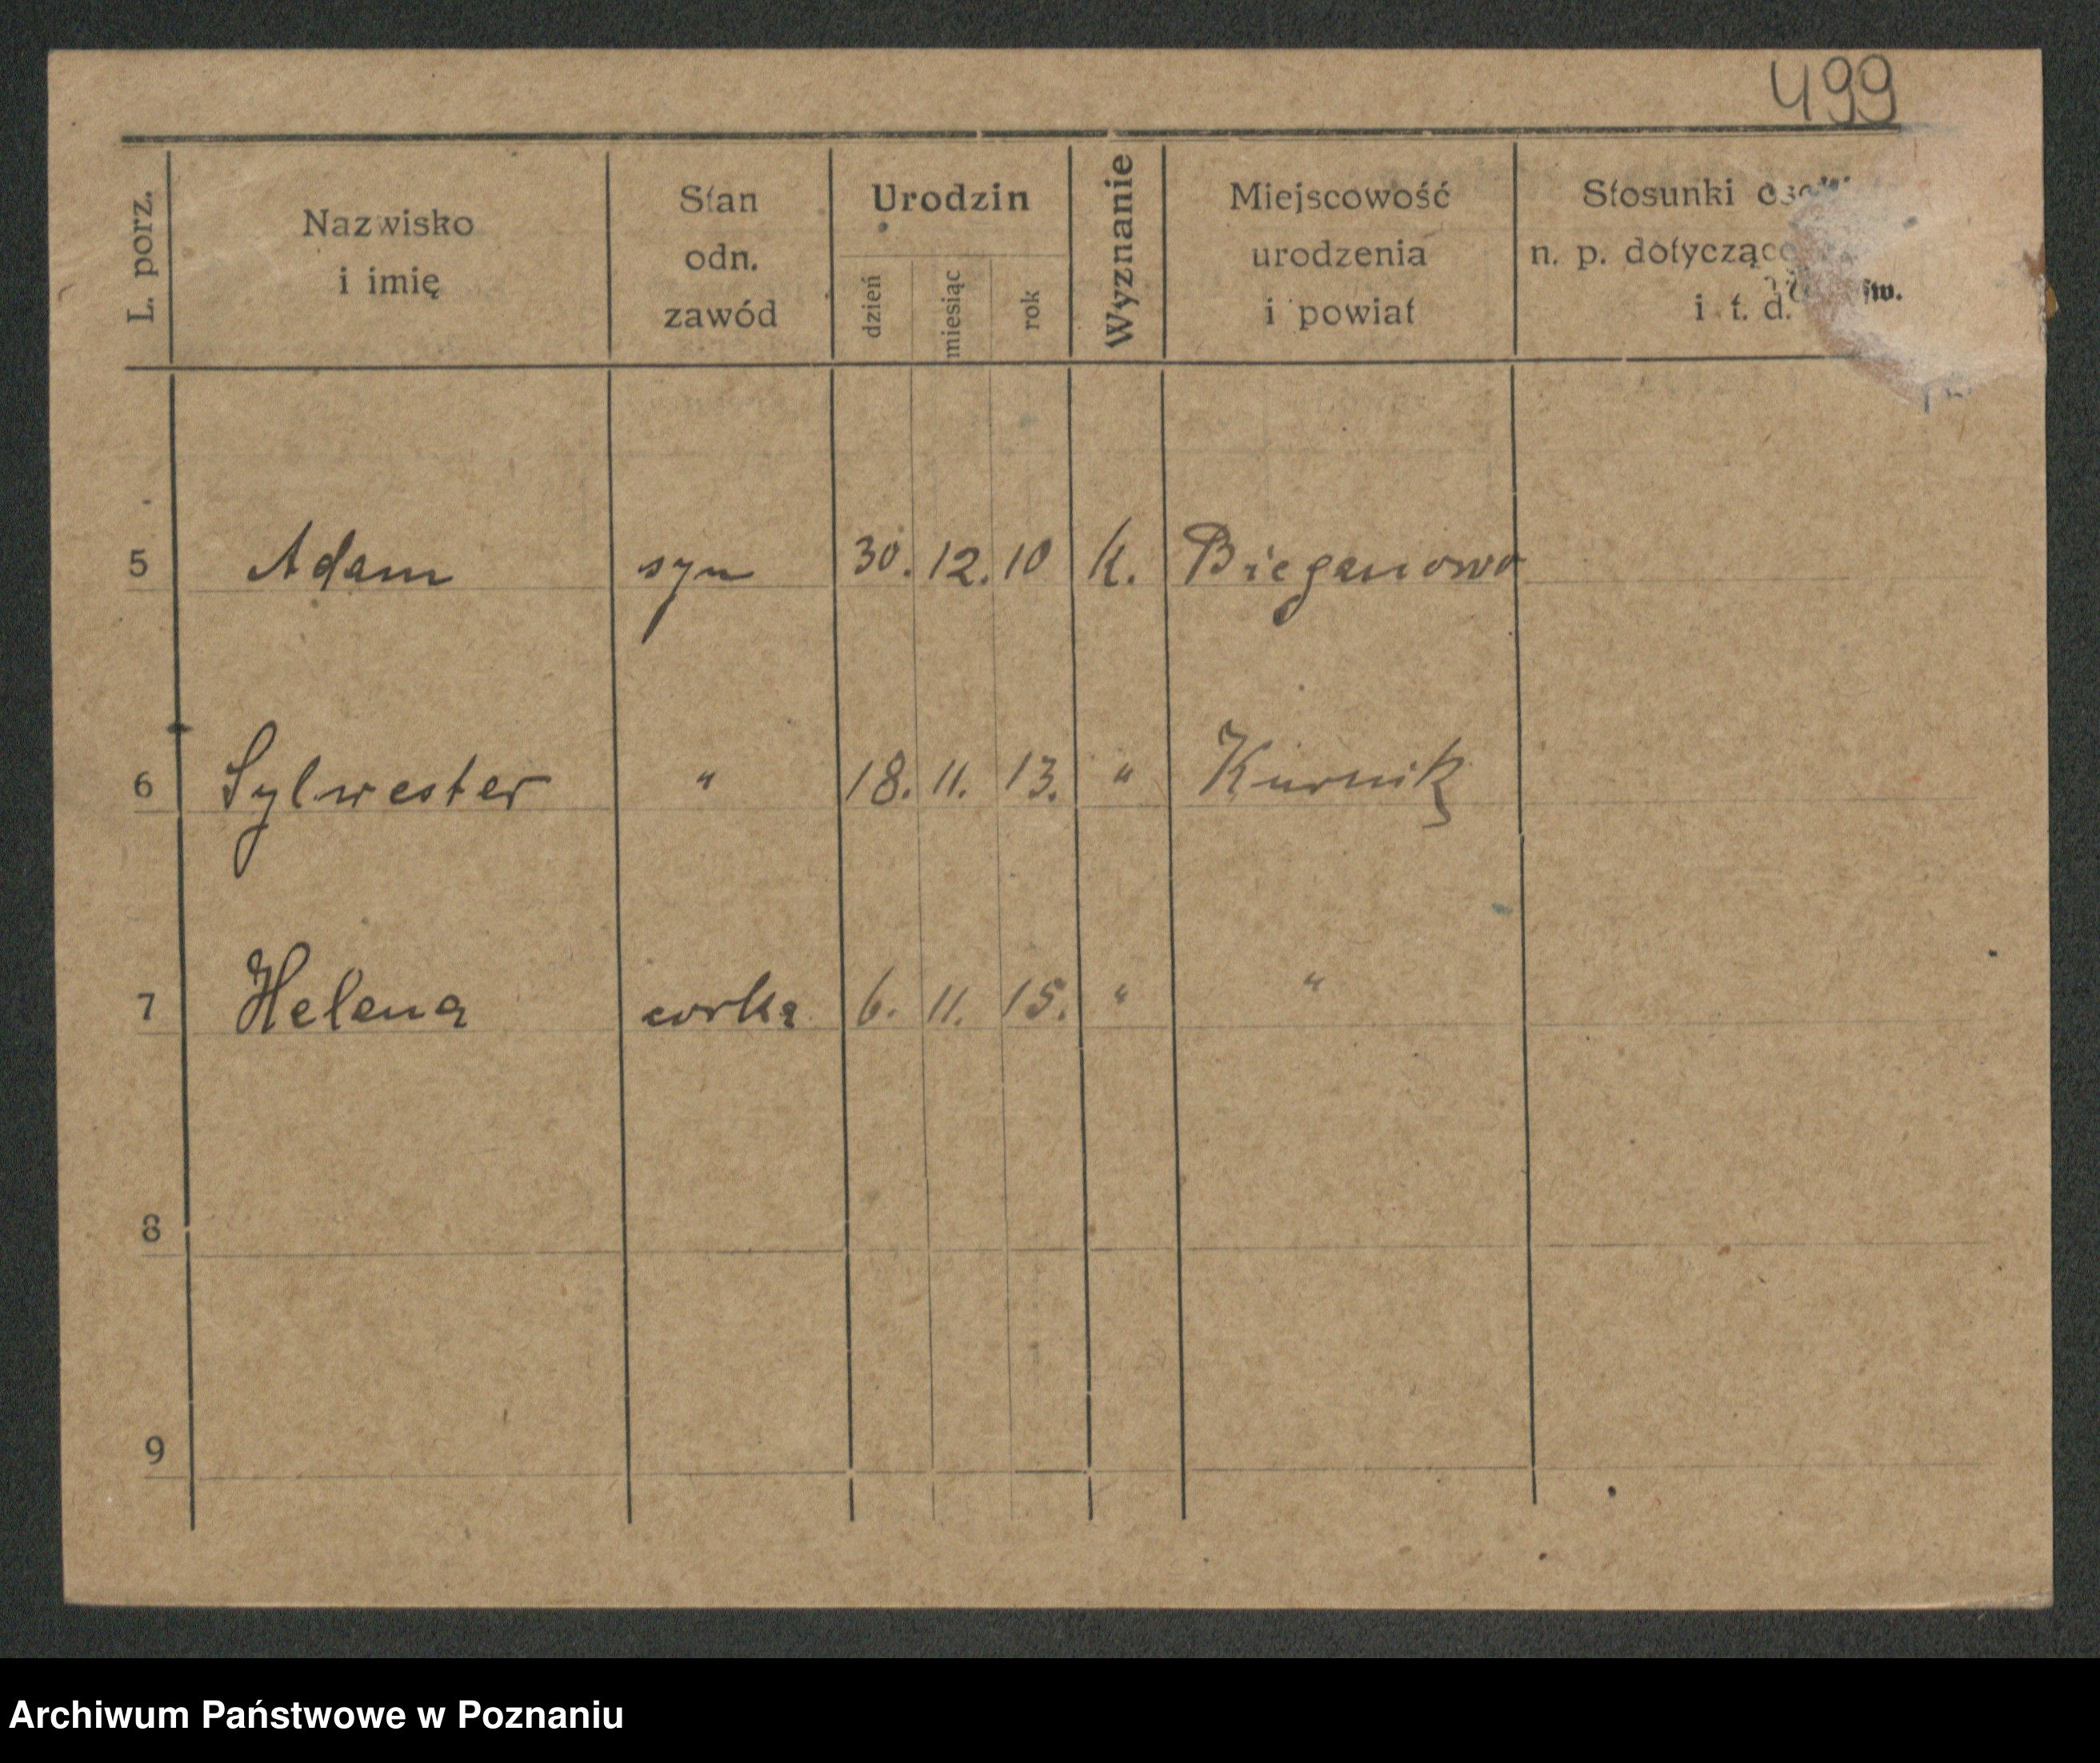 499
L. porz. Nazwisko i imię Stan odn. zawód Urodzin dzień miesiąc rok Wyznanie Miejscowość urodzenia i powiat Stosunki n. p. i t. d.
5 Adam syn 30. 12. 10 K. Bieganowo
6 Sylwester " 18. 11. 13. " Kurnik
7 Helena corka 6. 11. 15. " "
8
9
Archiwum Państwowe w Poznaniu